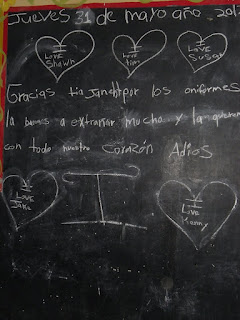 Jueves 31 de mayo año 201
I Love Shawn
I Love tim
I Love Susan
Gracias tia Janeht por los oniformes
la bamos a extrañar mucho y la queremos
con todo nuestro Corazón Adios
I Love Jake
I
I Love Kenny